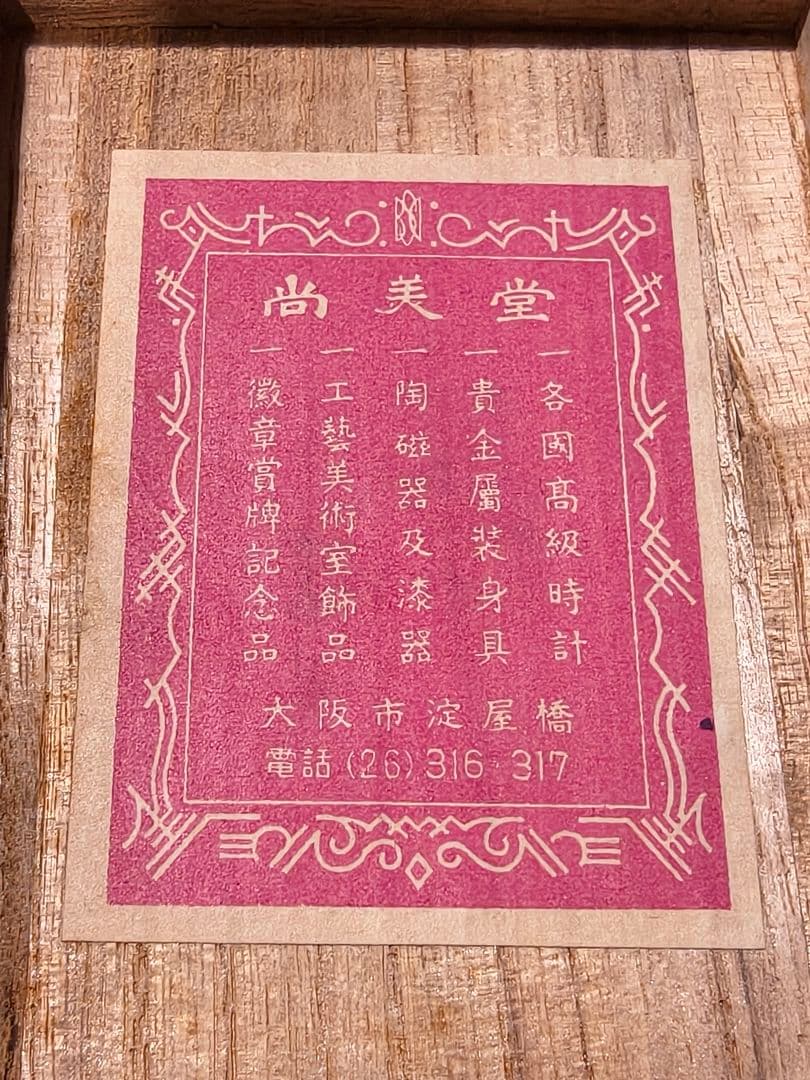 尚美堂
一各國高級時計
一貴金屬裝身具
一陶磁器及漆器
一工藝美術室飾品
一徽章賞牌記念品
大阪市淀屋橋
電話(26)316・317